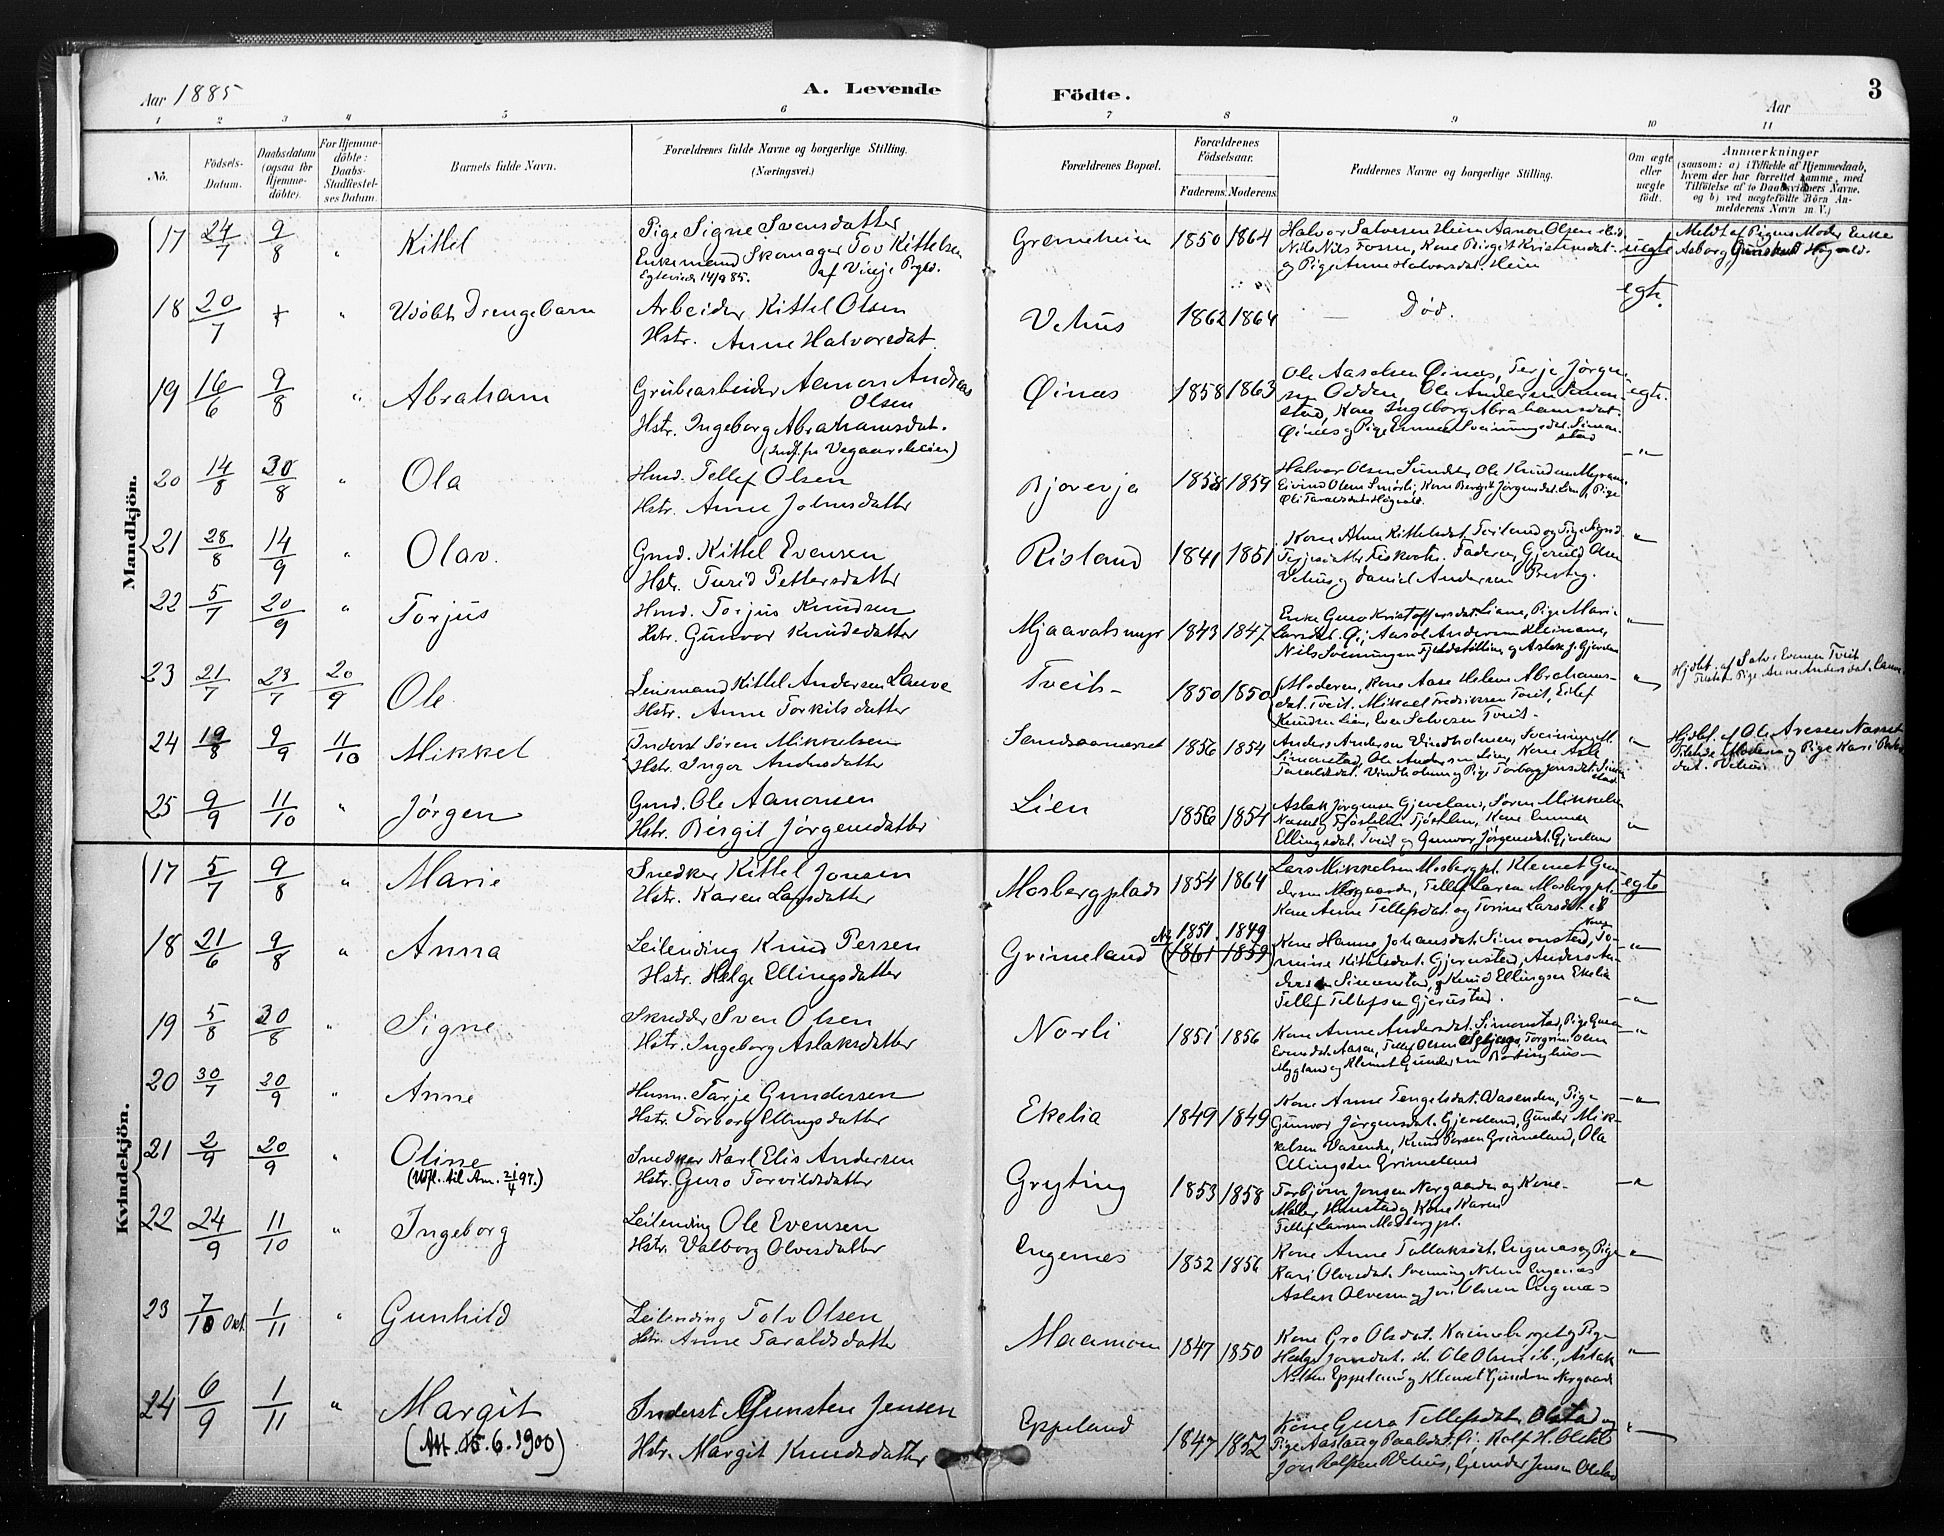 Aar 1885
A. Levende
Födte.
Aar
3
1 2 3 4 5 6 7 8 9 10 11
No.
Födsels-Datum.
Daabsdatum (ogsaa for Hjemme-döbte).
For Hjemme-döbte: Daabs-Stadfæstel-ses Datum.
Barnets fulde Navn.
Forældrenes fulde Navne og borgerlige Stilling. (Næringsvei.)
Forældrenes Bopæl.
Forældrenes Födselsaar.
Faderens. Moderens.
Faddernes Navne og borgerlige Stilling.
Om ægte eller uægte födt.
Anmærkninger
(saasom: a) i Tilfælde af Hjemmedaab,
hvem der har forrettet samme, med
Tilföielse af to Daabsvidners Navne.
og b) ved uægtefödte Börn An-
melderens Navn m. V.)
Mandkjön.
17 24/7 9/8 " Kittel
Pige Signe Svensdatter
Enkemand Skomager Tov Kittelsen
Egteviede 14/9 85. af Vinje Prgld.
Grømeheim 1850 1864
Halvor Salvesen Heim Aanon Olsen ibid.
Nils Nils Fosen, Kone Birgit Kristensdat.
og Pige Anne Halvorsdat. Heim
uegte
Meldt af Pigens Moder Enke
Asborg
18 20/7 + " Udøbt Drengebarn
Arbeider Kittel Olsen
Hstr. Anne Halvorsdat.
Vehus 1862 1864
Død.
egte.
19 16/6 9/8 " Abraham
Grubearbeider Aanon Andreas
Olsen
Hstr. Ingeborg Abrahamsdat.
(Indf. fr. Vegaarsheien)
Øinæs 1858 1863
Ole Aaselsen Øinæs, Terje Jørgen-
sen Odden, Ole Andersen Simon-
stad, Kone Ingeborg Abrahamsdat.
Øinæs og Pige Emma Sveinungsdat. Simon-
stad
egte.
20 14/8 30/8 " Ola
Hmd. Tellef Olsen
Hstr. Anne Johnsdatter
Bjorvja 1858 1859
Halvor Olsen Sundet, Ole Knudsen Myran
Eivind Olsen Smørli, Kone Bergit Jørgensdat. Lien, Pige
21 28/8 14/9 " Olav.
Gmd. Kittel Evensen
Hstr. Turid Pettersdatter
Risland 1841 1851
Kone Anne Kittelsdat. Tveitend og Pige Sigrid
Terjesdatter Faderen, Gjerulf Olsen
Vehus og Daniel Andersen
22 5/7 20/9 " Torjus
Hmd. Torjus Knudsen
Hstr. Gunvor Knudsdatter
Mjaavatsmyr 1843 1847
Enke Guro Kristoffersdat. Liane, Pige Mari
Larsdat. Øi, Aasol Andersen Kleivane,
Nils Sveinungsen Fjeldstølen og Aslak J. Gjevelan
23 21/7 23/7 20/9 Ole
Leiermand Kittel Andersen Lauve
Hstr. Anne Torkilsdatter
Tveit 1850 1850
Moderen, Kone Aase Helene Abrahams-
dat. Tveit. Mikael Fredriksen Tveit, Eilef
Knudsen Lien, Even Salvesen Tveit.
Hjdbt. af Salve Evensen Tveit
24 19/8 9/9 11/10 Mikkel
Inderst Søren Mikkelsen
Hstr. Inger Andersdatter
1856 1854
Anders Andersen Vindholmen, Sveinung
Simonstad, Ole Andersen Lien, Kone Asle
Taraldsdat. Vindholmen og Pige Torborg Jonsdat. Simon-
stad
Hjdbt. af Ole Aresen Næsset
Tilstede Moderen og Pige Kari Peders-
dat. Vehus
25 9/9 11/10 " Jørgen
Gmd. Ole Aanonsen
Hstr. Birgit Jørgensdatter
Lien 1856 1854
Aslak Jørgensen Gjeveland, Søren Mikkelsen
Ellingsdat. Tveit og Gunvor Jørgensdat. Gjevelan
Kvindekjön.
17 5/7 9/8 " Marie
Snedker Kittel Jonsen
Hstr. Karen Larsdatter
Mosbergplads 1854 1864
Lars Mikkelsen Mosbergpl. Klemet Gun-
dersen Morgaarden, Tellef Larsen Mosbergpl.
Kone Anne Tellefsdat. og Torine Larsdat. ib
egte
18 21/6 9/8 " Anna
Leilending Knud Persen
Hstr. Helge Ellingsdatter
Grimeland 1851. 1849
(1861 1859)
Kone Hanne Johansdat. Simonstad, Kone To-
mine Kittelsdat. Gjerustad, Anders An-
dersen Simonstad, og Knud Ellingsen Ekelia
Tellef Tellefsen Gjerustad.
19 5/8 30/8 " Signe
Skredder Sven Olsen
Hstr. Ingeborg Aslaksdatter
Norli 1851 1856
Kone Anne Andersdat. Simonstad, Pige Guro
Evensdat. Aasen, Tellef Olsen Torgrim Olsen
Mygland og Klemet Gundersen
20 30/7 20/9 " Anne
Husm. Tarje Gundersen
Hstr. Torborg Ellingsdatter
Ekelia 1849 1849
Kone Anne Tengelsdat. Vasenden, Pige
Gunvor Jørgensdat. Gjeveland, Gunder Mik-
kelsen Vasenden, Knud Persen Grimeland, Ola
Ellingsen Grimeland
21 2/9 20/9 " Oline
(Utfl. til Am. 21/4 97.)
Snedker Karl Elis Andersen
Hstr. Guro Torvildsdatter
Gryting 1853 1858
Torbjørn Jonsen Norgaarden og Kone
Maler Hunstad og Kone Karen
Tellef Larsen Mosbergpl.
22 24/9 11/10 " Ingeborg
Leilending Ole Evensen
Hstr. Valborg Olvesdatter
Engenes 1852 1856
Kone Anne Tallaksdat. Engenæs og Pige
Kari Olvesdat. Svenning Nilsen Engenæs
Aslak Olvesen og Jon Olsen Engenæs
23 7/10 Okt. 1/11 " Gunhild
Leilending Tolv Olsen
Hstr. Anne Taraldsdatter
Maamoen 1847 1850
Kone Gro Olsdat. og Pige
Helge Jonsdat. ib. Ole Olsen ib., Aslak
Nilsen Eppeland og Klemet Gundersen Norgaarden
24 6/9 1/11 " Margit
(Att. 15.6.1900)
Inderst Gunsten Jensen
Hstr. Margit Knudsdatter
Eppeland 1847 1852
Kone Guro Tellefsdat. Olstad og
Pige Aaslaug Paalsdat. Øi, Rolf H. Olstad
Jon Rolfsen Vehus, Gunder Jensen Olstad